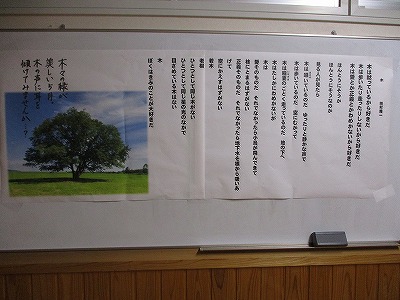 木
田村隆一
木は黙っているから好きだ
木は歩いたり走ったりしないから好きだ
木は愛とか正義とかわめかないから好きだ
ほんとうにそうか
ほんとうにそうなのか
見る人が見たら
木は囁いているのだ ゆったりと静かな声で
木は歩いているのだ 空にむかって
木は稲妻のごとく走っているのだ 地の下へ
木はたしかにわめかないが
木は
愛そのものだ それでなかったら小鳥が飛んできて
枝にとまるはずがない
正義そのものだ それでなかったら地下水を根から吸いあ
げて
空にかえすはずがない
若木
老樹
ひとつとして同じ木がない
ひとつとして同じ星の光のなかで
目ざめている木はない
木
ぼくはきみのことが大好きだ
木々の緑が
美しい5月、
木の声に耳を
傾けてみませんか…?